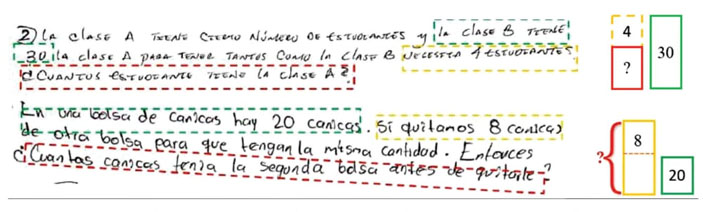 2) La clase A TIENE CIERTO NÚMERO DE ESTUDIANTES y la clase B TIENE
30, la clase A PARA TENER TANTOS COMO la clase B NECESITA 4 ESTUDIANTES
¿CUANTOS ESTUDIANTE TIENE la clase A?
4
?
30
En una bolsa de canicas hay 20 canicas. Si quitamos 8 canicas
de otra bolsa para que tengan la misma cantidad. Entonces
¿Cuantas canicas tenia la segunda bolsa antes de quitarle?
?
8
20